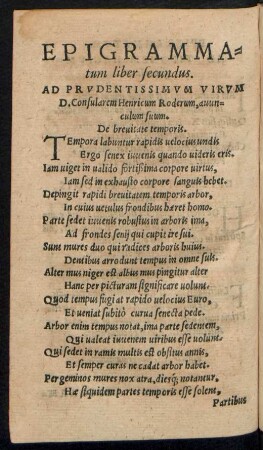 EPIGRAMMA-
tum liber secundus.
AD PRVDENTISSIMVM VIRVM
D. Consularem Henricum Roderum, auun-
culum suum.
De breuitate temporis.
TEmpora labuntur rapidis uelocius undis
Ergo senex iuuenis quando uideris eris.
Iam uiget in ualido fortissima corpore uirtus,
Iam sed in exhausto corpore sanguis hebet.
Depingit rapidi breuitatem temporis arbor,
In cuius uetulus frondibus hæret homo.
Parte sedet iuuenis robustus in arboris ima,
Ad frondes senij qui cupit ire sui.
Sunt mures duo qui radices arboris huius
Dentibus arrodunt tempus in omne suis.
Alter mus niger est albus mus pingitur alter
Hanc per picturam significare uolunt.
Quod tempus fugiat rapido uelocius Euro,
Et ueniat subitò curua senecta pede.
Arbor enim tempus notat, ima parte sedentem,
Qui ualeat iuuenem uiribus esse uolunt.
Qui sedet in ramis multis est obsitus annis,
Et semper curas ne cadat arbor habet.
Per geminos mures nox atra, diesq; notantur,
Hæ siquidem partes temporis esse solent,
Partibus